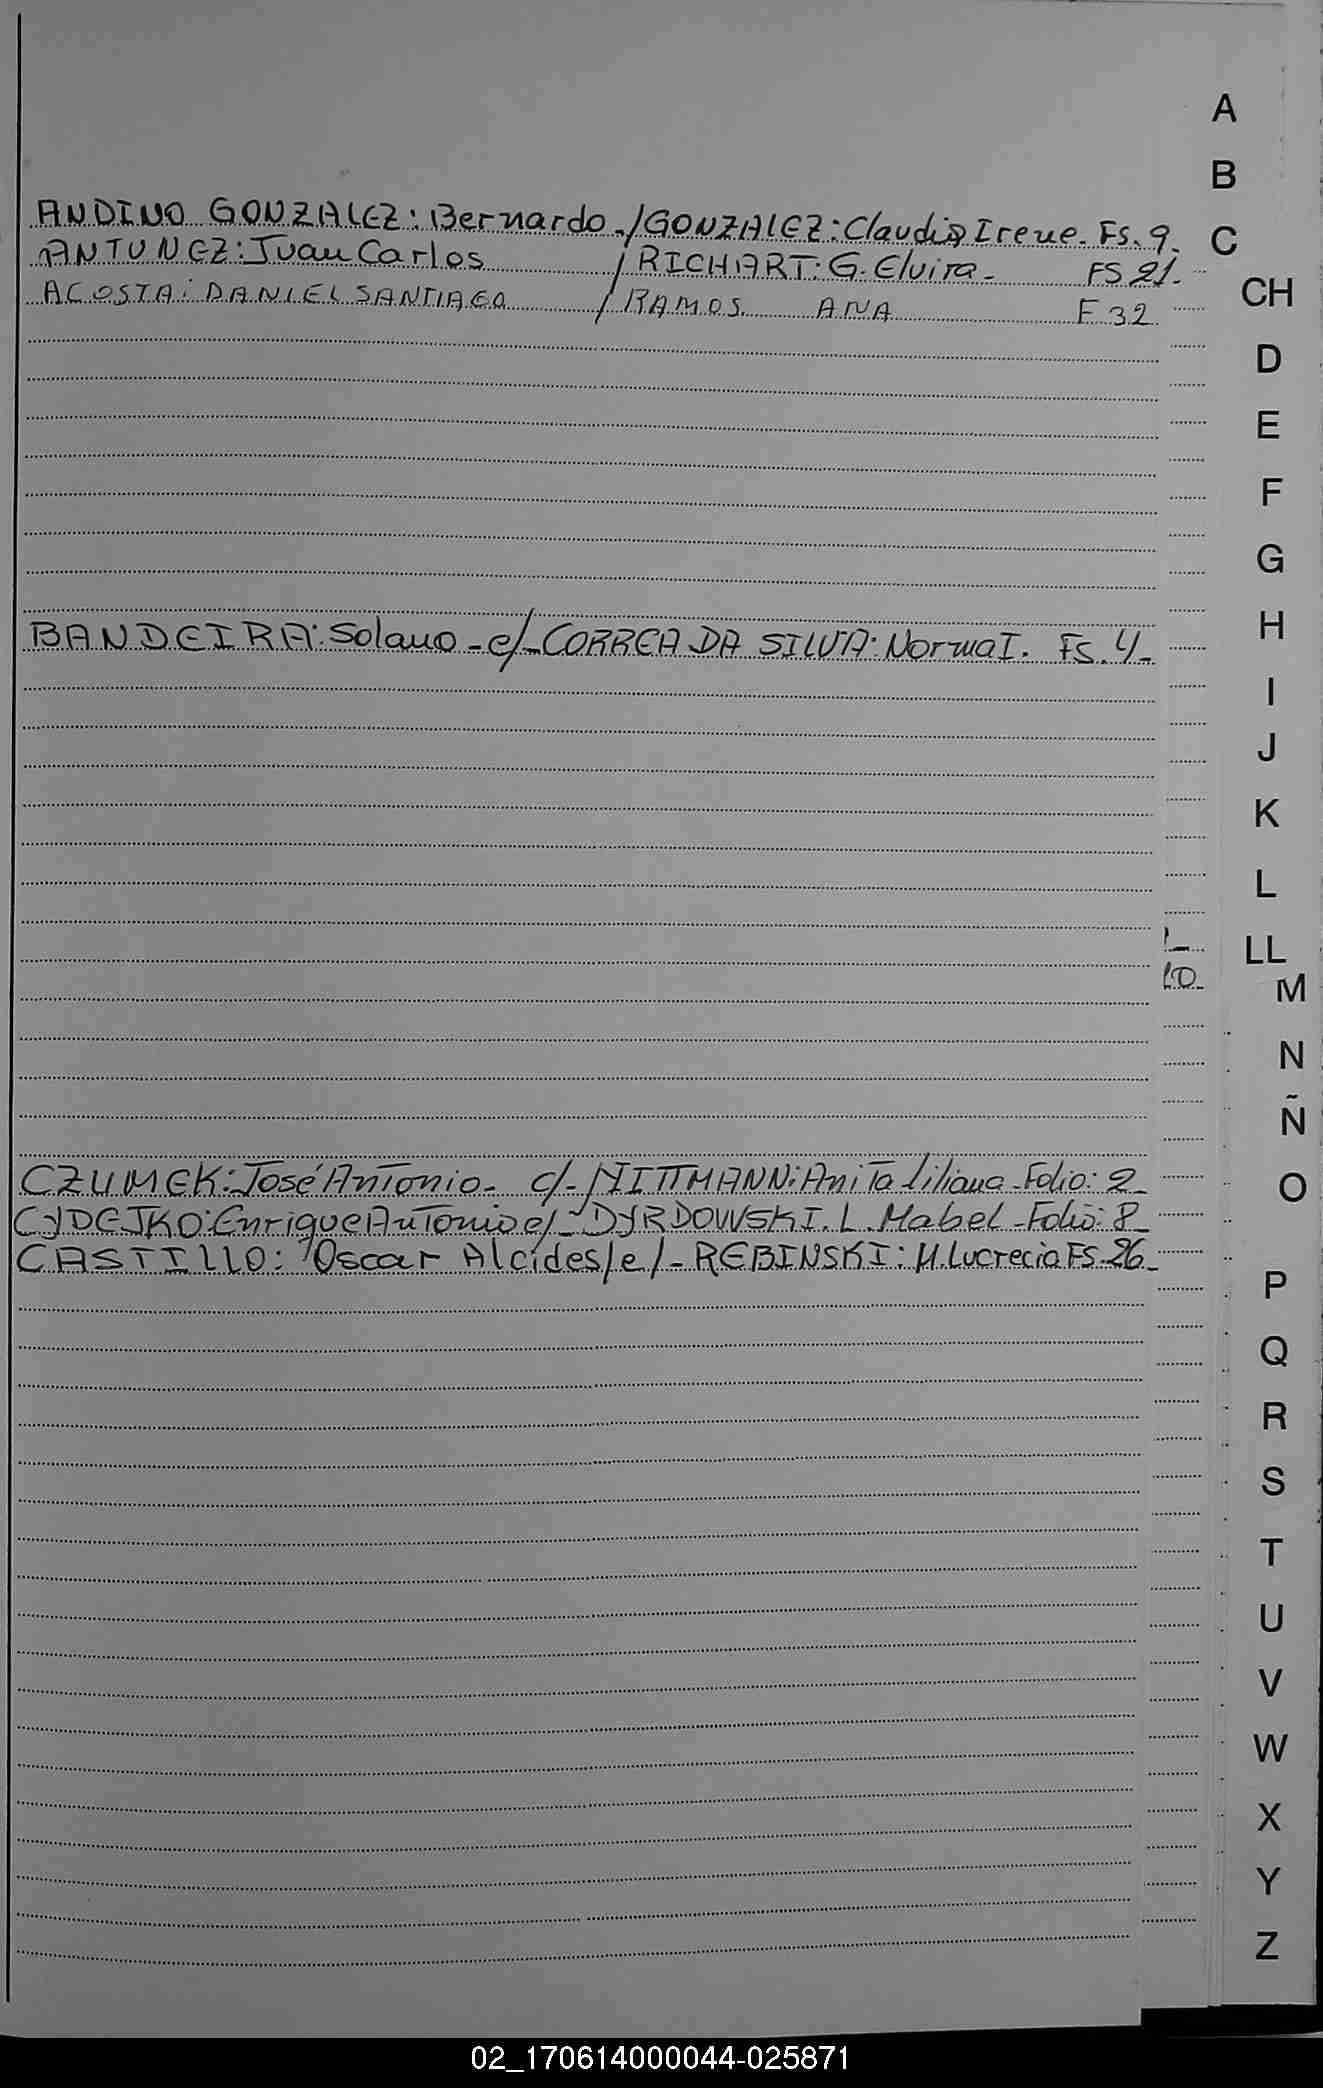 A
B
ANDINO GONZALEZ: Bernardo./GONZALEZ: Claudia Irene. Fs. 9.
C
ANTUNEZ: Juan Carlos / RICHART: G. Elvira - FS 21.
CH
ACOSTA: DANIEL SANTIAGO / RAMOS ANA F 32
D
E
F
G
H
BANDEIRA: Solano - c/- CORREA DA SILVA: Norma I. Fs. 4-
I
J
K
L
LL
10
M
N
Ñ
CZUMEK: José Antonio - c/- NITTMANN: Anita liliana - Folio: 2
O
CYDEJKO: Enrique Antonio c/- DYRDOWSKI. L. Mabel - Folio: 8
CASTILLO: Oscar Alcides/c/- REBINSKI: M. Lucrecia FS. 26
P
Q
R
S
T
U
V
W
X
Y
Z
02_170614000044-025871